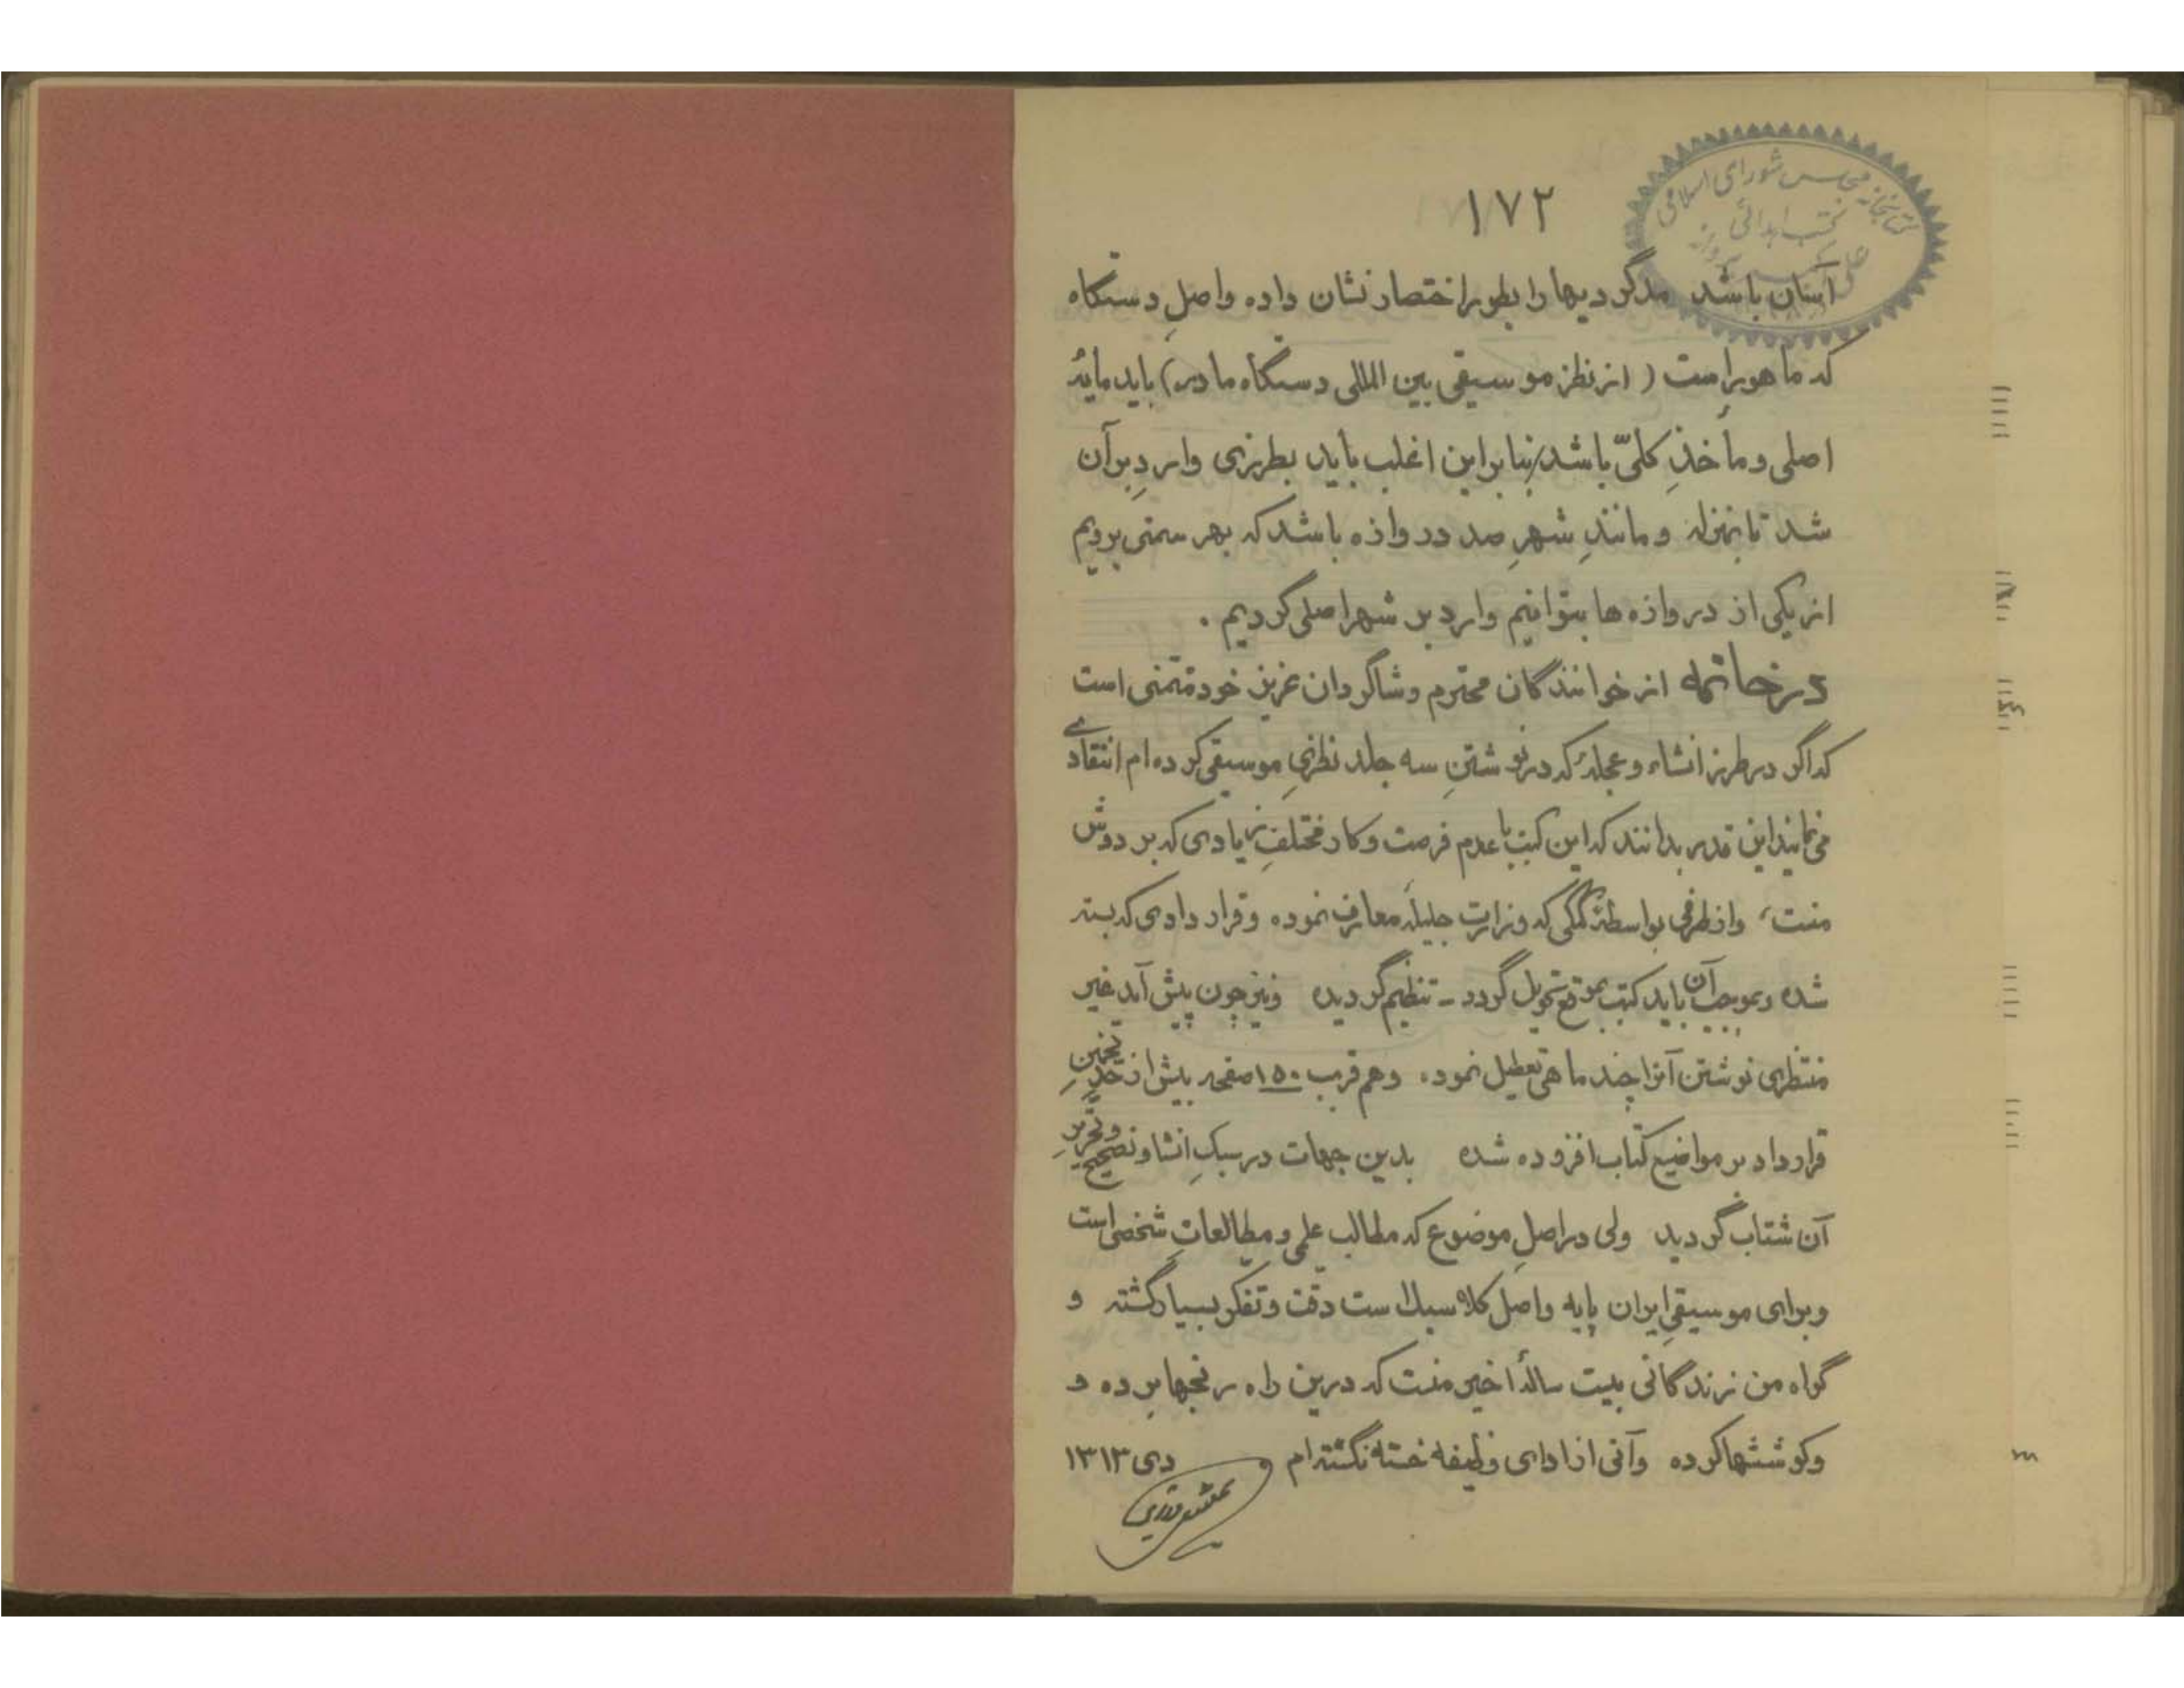 ۱۷۲
کتابخانه مجلس شورای اسلامی
کتب اهدائی
آسان باشد مدگردیها را بطور اختصار نشان داده و اصلِ دستگاه
که ماهور است (از نظر موسیقی بین المللی دستگاه مادر) باید مایهٔ
اصلی و مأخذِ کلّی باشد بنابراین اغلب باید بطرزی واردِ برآن
شد تا بمنزله و مانندِ شهرِ صد دروازه باشد که بهر سمتی برویم
از یکی از دروازه ها بتوانیم وارد بر شهر اصلی گردیم .
در خاتمه از خوانندگان محترم و شاگردان عزیز خود متمنی است
که اگر در طرز انشاء و عجلهٔ که در نوشتنِ سه جلد نظریِ موسیقی کرده ام انتقادی
می نمایند این قدر بدانند که این کتب با عدم فرصت و کار مختلفِ زیادی که بر دوش
منت، و از طرفی بواسطهٔ کمکی که وزارت جلیلهٔ معارف نموده و قراردادی که بسته
شده و بموجب آن باید کتب بموقع تحویل گردد - تنظیم گردیده و نیز چون پیش آمد غیر
منتظری نوشتن آنرا چند ماهی تعطیل نموده و هم قریب ۱۵۰ صفحه بیش از حدِّ تخمینِ
قرارداد بر مواضیع کتاب افزوده شده بدین جهات در سبکِ انشا و تصحیح و تحریرِ
آن شتاب گردید ولی در اصلِ موضوع که مطالب علمی و مطالعاتِ شخصی است
و برای موسیقیِ ایران پایه و اصل کلاسیک است دقت و تفکر بسیار گشته و
گواه من زندگانی بیست سالهٔ اخیر منست که درین راه رنجها برده و
و کوششها کرده و آنی از ادای وظیفه خسته نگشته ام دی ۱۳۱۳